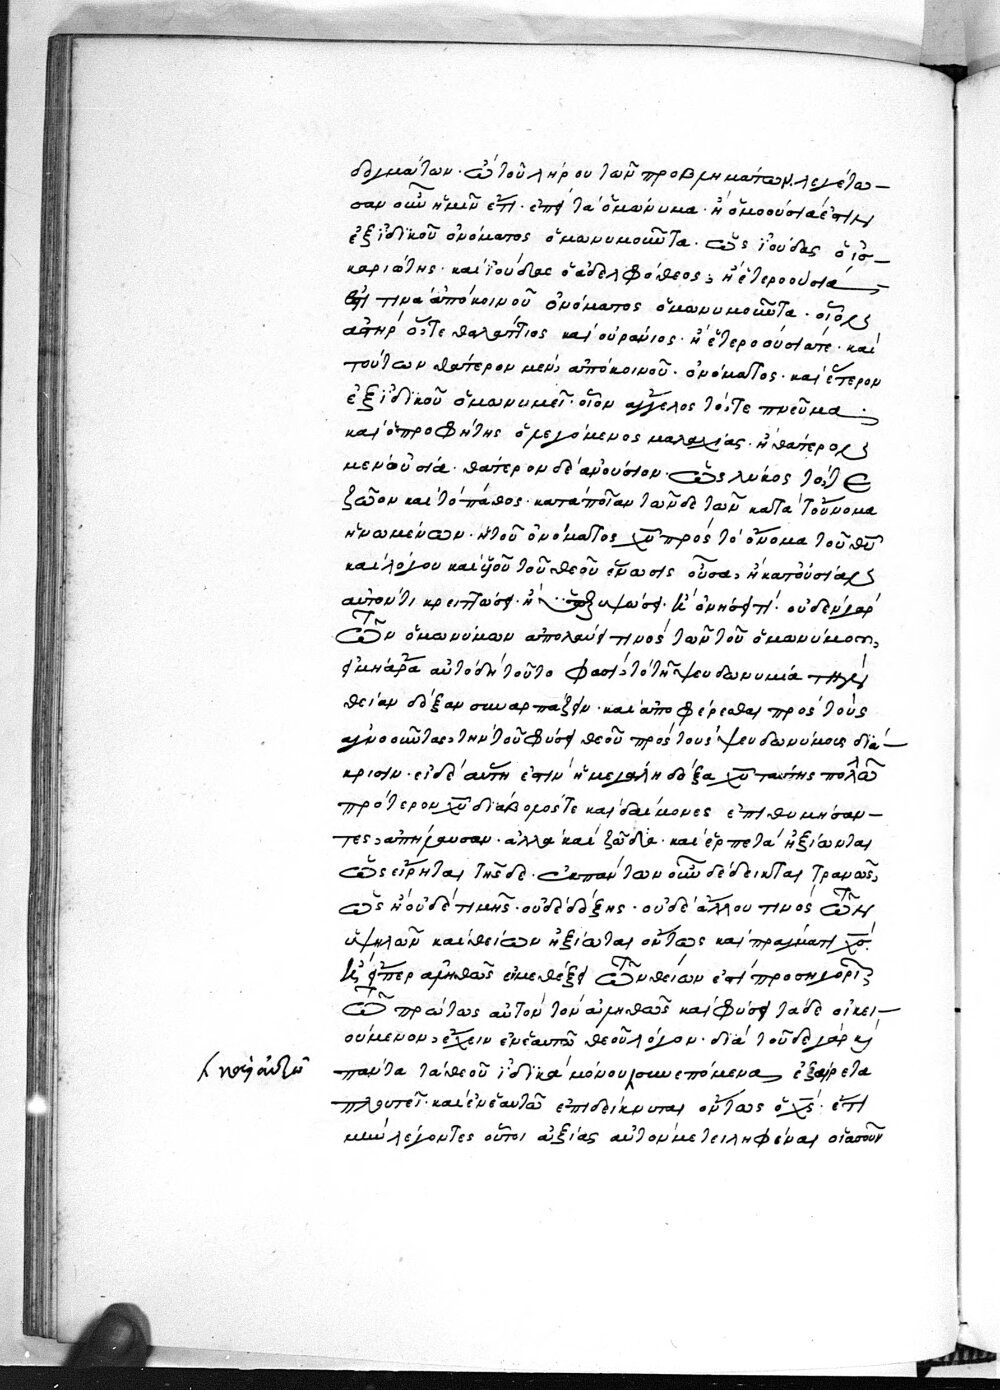 δειγμάτων. ὦ τοῦ λήρου τῶν προβλημάτων. λεγέτω-
σαν οὖν ἡμῖν ἔτι. ἐπεὶ τὰ ὁμώνυμα. ἢ ὁμοούσια ἐστὶν
ἐξ ἰδικοῦ ὀνόματος ὁμωνυμοῦντα. ὡς ἰούδας ὁ ἰσ-
καριώτης. καὶ ἰούδας ὁ ἀδελφόθεος, ἢ ἑτεροούσια
τινὰ ἀπὸ κοινοῦ ὀνόματος ὁμωνυμοῦντα. οἷον
ἀετὴρ ὅ τε καὶ οὐράνιος. ἢ ἑτεροούσια τέ. καὶ
τούτων θάτερον μὲν, ἀπὸ κοινοῦ. ὀνόματος. καὶ ἕτερον
ἐξ ἰδικοῦ ὁμωνυμεῖ. οἷον ἄγγελος τό, τε πνεῦμα.
καὶ ὁ προφήτης ὁ λεγόμενος μαλαχίας. ἢ θάτερον
μὲν οὐσία. θάτερον δὲ ἀνούσιον. ὡς λύκος τό, τε
ζῶον καὶ τὸ πάθος. κατὰ ποῖαν τῶνδε τῶν κατὰ τοὔνομα
ἡνωμένων. ἡ τοῦ ὀνόματος χυ πρὸς τὸ ὄνομα τοῦ θυ
καὶ λόγου καὶ υἱοῦ τοῦ θεοῦ ἕνωσις οὖσα, ἢ κατ' οὐσίαν
αὐτὸν τι κρειττώσει. ἢ ὑψώσει. κἀ ὀνήσει τί. οὐδὲν γὰρ
τῶν ὁμωνύμων ἀπολαύει τινὸς τῶν τοῦ ὁμωνύμου,
εἰ μὴ ἄρα αὐτὸ δὴ τοῦτο φασὶ, τὸ τῇ ψευδωνυμία τὴν
θείαν δόξαν συναρπάζειν. καὶ ἀποφέρεσθαι πρὸς τοὺς
ἀγνοοῦντας, τὴν τοῦ φύσει θεοῦ πρὸς τοὺς ψευδωνύμους διά-
κρισιν. εἰ δὲ αὕτη ἐστὶν ἡ μεγάλη δόξα χυ ταύτης πολλῶ
πρότερον χυ διάβολός τε καὶ δαίμονες ἐπιθυμήσαν-
τες, ἀπήλαυσαν. ἀλλὰ καὶ ζῶδια. καὶ ἑρπετὰ ἠξίωνται
ὡς εἴρηται τῆσδε. ἐκ πάντων οὖν δέδεικται τρανῶς,
ὡς ἢ οὐδὲ τιμῆς. οὐδὲ δόξης. οὐδὲ ἄλλου τινὸς τῶν
ὑψηλῶν καὶ θείων ἠξίωται ὄντως καὶ πράγματι χσ.
κἀ εἴπερ ἀληθῶς εἰ μεθέξει τῶν θείων ἐστὶ προσηγοριῶν
τῶ πρώτως αὐτὸν τὸν ἀληθῶς καὶ φύσει τάδε οἰκει-
ούμενον, ἔχειν ἐν ἑαυτῶ θεοῦ λόγον. διὰ τοῦδε γὰρ καὶ
πάντα τὰ θεοῦ ἰδικὰ μόνου συνεπόμενα, ἐξαίρετα
πλουτεῖ. καὶ ἐν ἑαυτῶ ἐπιδείκνυται ὄντως ὁ χσ. ἔτι
μὴν λέγοντες οὗτοι ἀξίας αὐτὸν μετειληφέναι οἱασοῦν